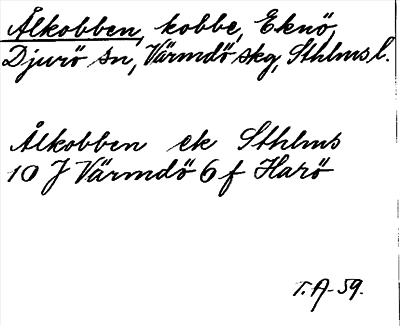 Ålkobben, kobbe, Eknö,
Djurö sn, Värmdö skg, Sthlms l.
Ålkobben ek Sthlms
10 J Värmdö 6 f Harö
T. A-59.